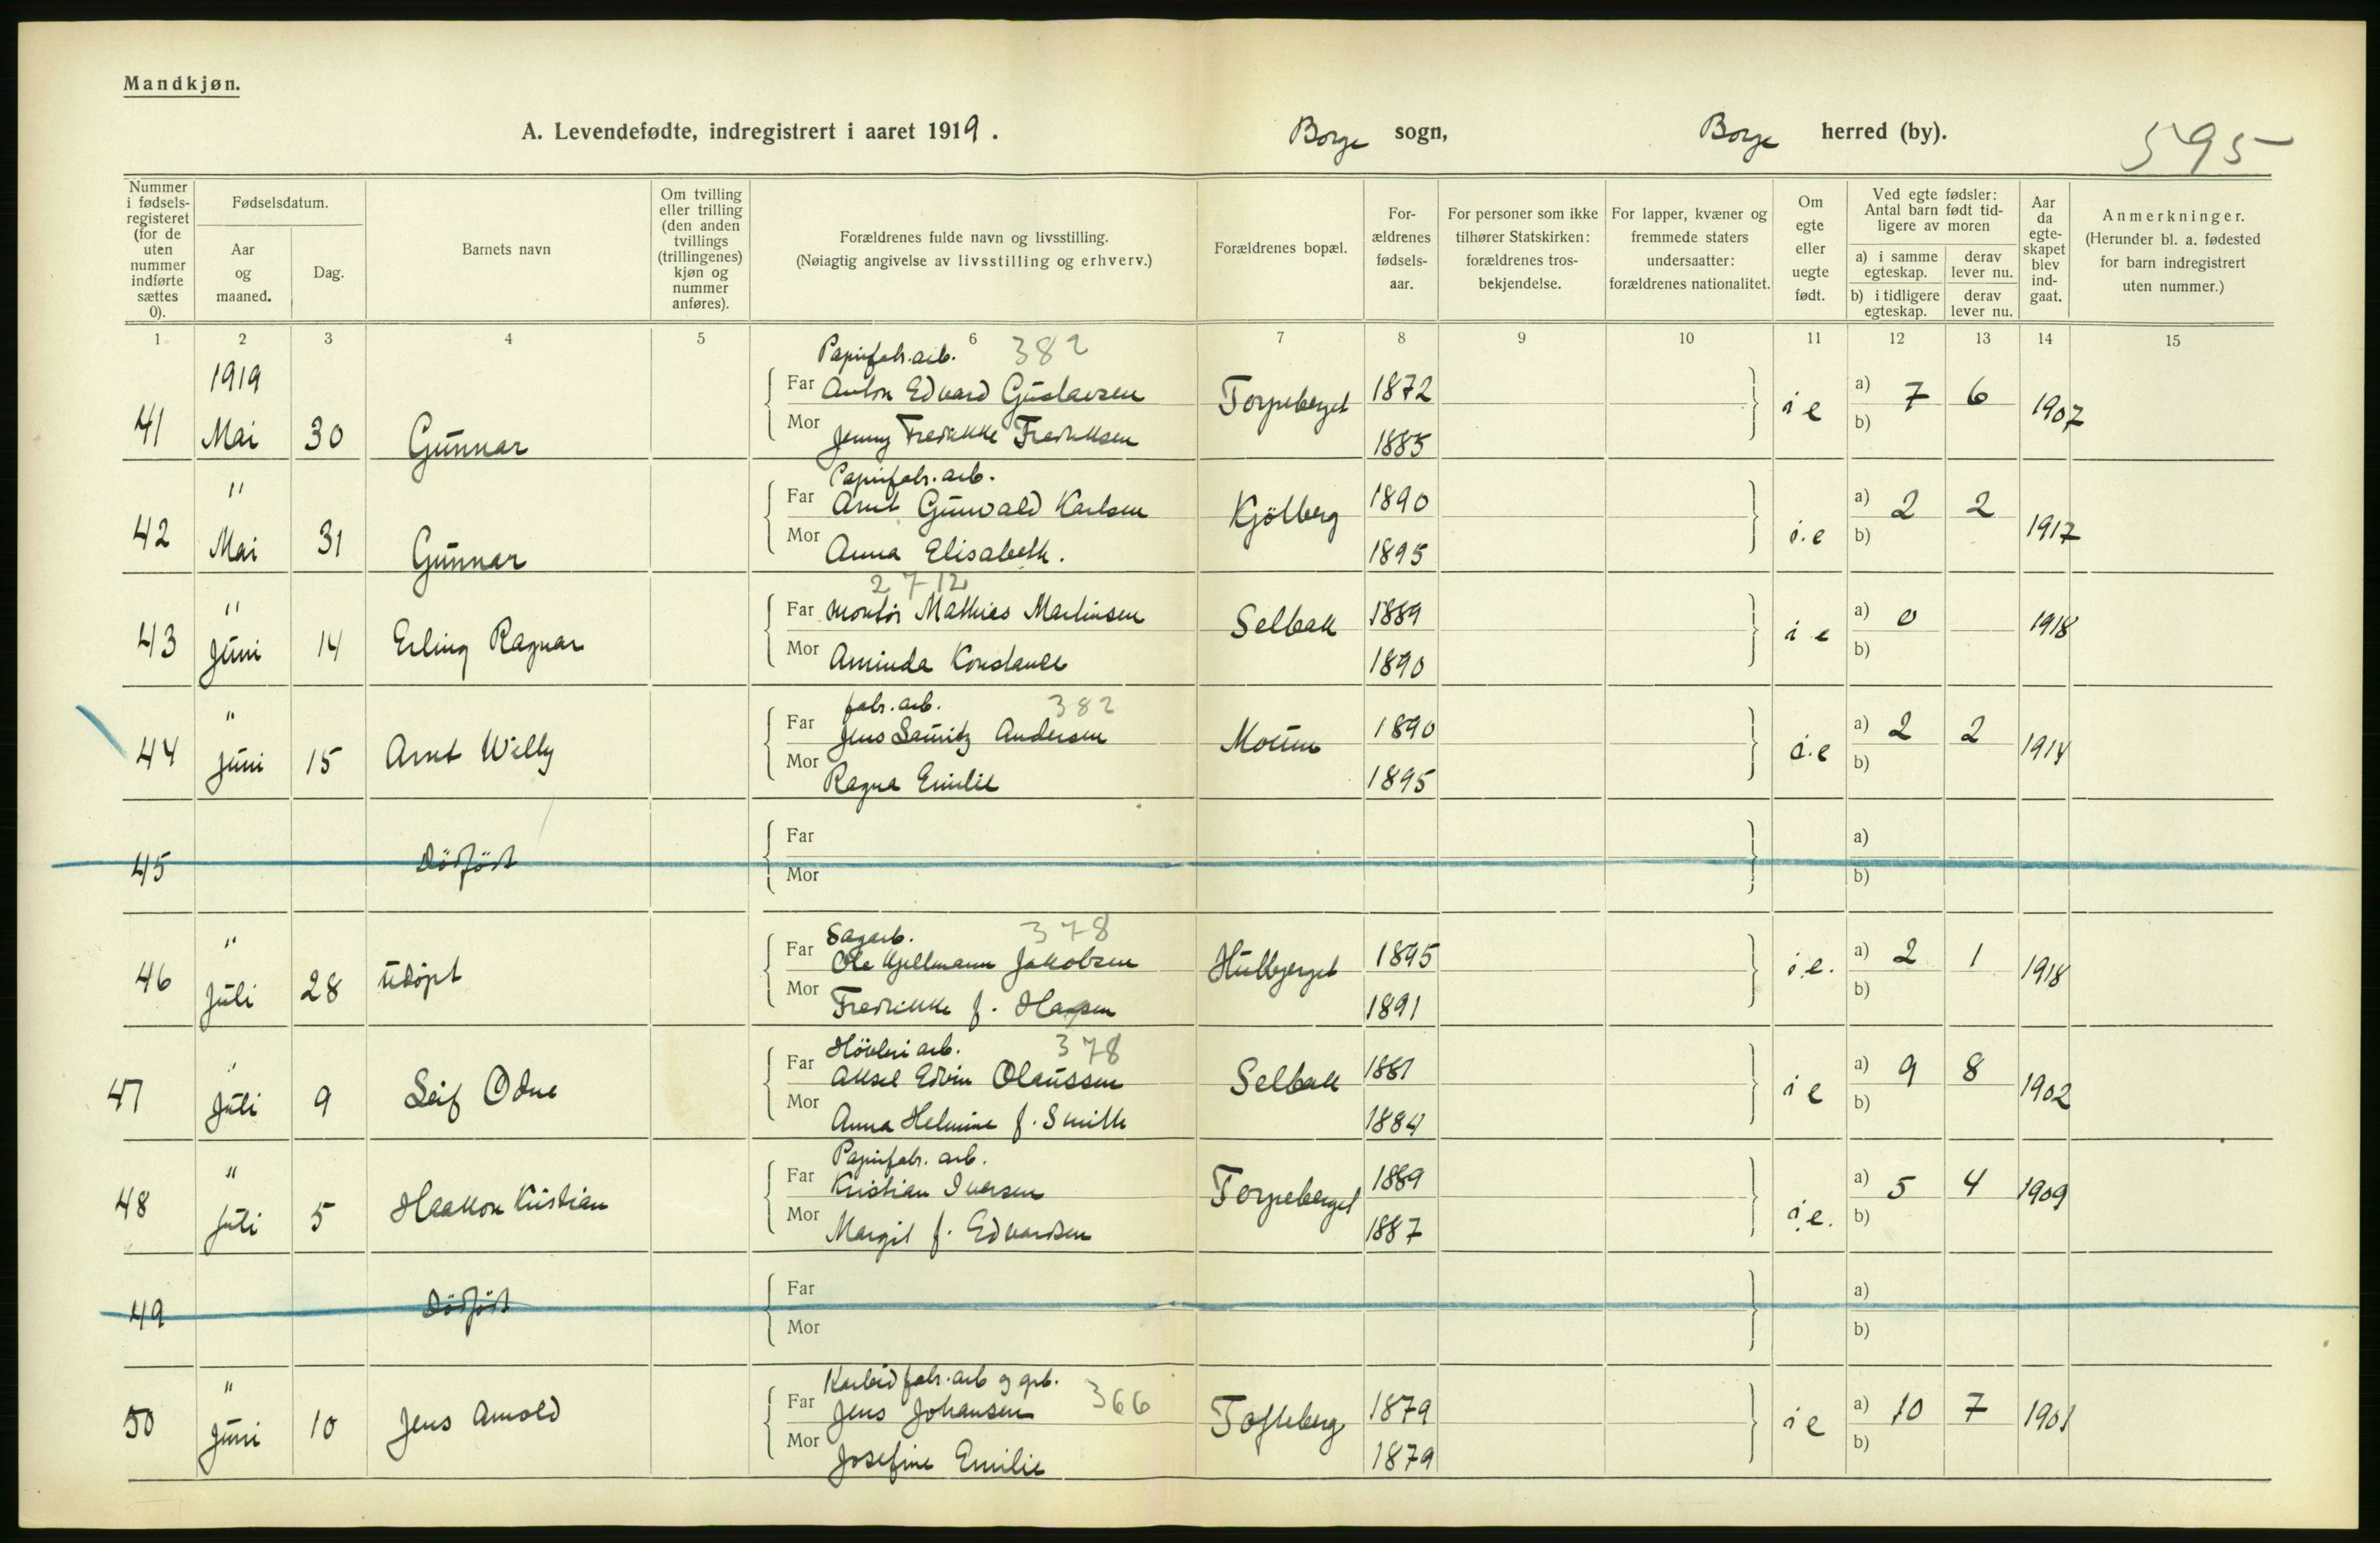 Mandkjøn.
A. Levendefødte, indregistrert i aaret 1919. Borge sogn, Borge herred (by). 595
Nummer i fødselsregisteret (for de uten nummer indførte sættes 0).
Fødselsdatum.
Aar og maaned.
Dag.
Barnets navn
Om tvilling eller trilling (den anden tvillings (trillingenes) kjøn og nummer anføres).
Forældrenes fulde navn og livsstilling.
(Nøiagtig angivelse av livsstilling og erhverv.)
Forældrenes bopæl.
Forældrenes fødselsaar.
For personer som ikke tilhører Statskirken: forældrenes trosbekjendelse.
For lapper, kvæner og fremmede staters undersaatter: forældrenes nationalitet.
Om egte eller uegte født.
Ved egte fødsler: Antal barn født tidligere av moren
a) i samme egteskap.
derav lever nu.
b) i tidligere egteskap.
derav lever nu.
Aar da egteskapet blev indgaat.
Anmerkninger.
(Herunder bl. a. fødested for barn indregistrert uten nummer.)
1 2 3 4 5 6 7 8 9 10 11 12 13 14 15
1919 Papirfabr.arb. 382
Far Anton Edvard Gustavsen Torpeberget 1872 a) 7 6
41 Mai 30 Gunnar Mor Jenny Fredrikke Fredriksen 1885 i e b) 1907
" Papirfabr.arb.
Far Arnt Gunvald Karlsen Kjölberg 1890 a) 2 2
42 Mai 31 Gunnar Mor Anna Elisabeth. 1895 i.e b) 1917
2712
" Far montör Mathias Martinsen Selbak 1889 a) 0
43 Juni 14 Erling Ragnar Mor Aminda Konstance 1890 i e b) 1918
" fabr.arb. 382
Far Jens Lauritz Andersen Moum 1890 a) 2 2
44 juni 15 Arnt Willy Mor Ragna Emilie 1895 i.e b) 1914
Far a)
45 Dödfödt Mor b)
" Sagarb. 378
Far Ole Kjellmann Jakobsen 1895 a) 2 1
46 Juli 28 Udøpt Mor Fredrikke f. Hansen 1891 i.e. b) 1918
" Høvleriarb. 378
Far Aksel Edvin Olaussen Selbak 1881 a) 9 8
47 Juli 9 Leif Odne Mor Anna Helmine f. Smith 1884 i e b) 1902
" Papirfabr. arb.
Far Kristian Iversen Torpeberget 1889 a) 5 4
48 Juli 5 Haakon Kristian Mor Margit f. Edvardsen 1887 i.e. b) 1909
Far a)
49 Dödfödt Mor b)
" Karbidfabr.arb og grb. 366
Far Jens Johansen Tofteberg 1879 a) 10 7
50 Juni 10 Jens Arnold Mor Josefine Emilie 1879 i e b) 1901